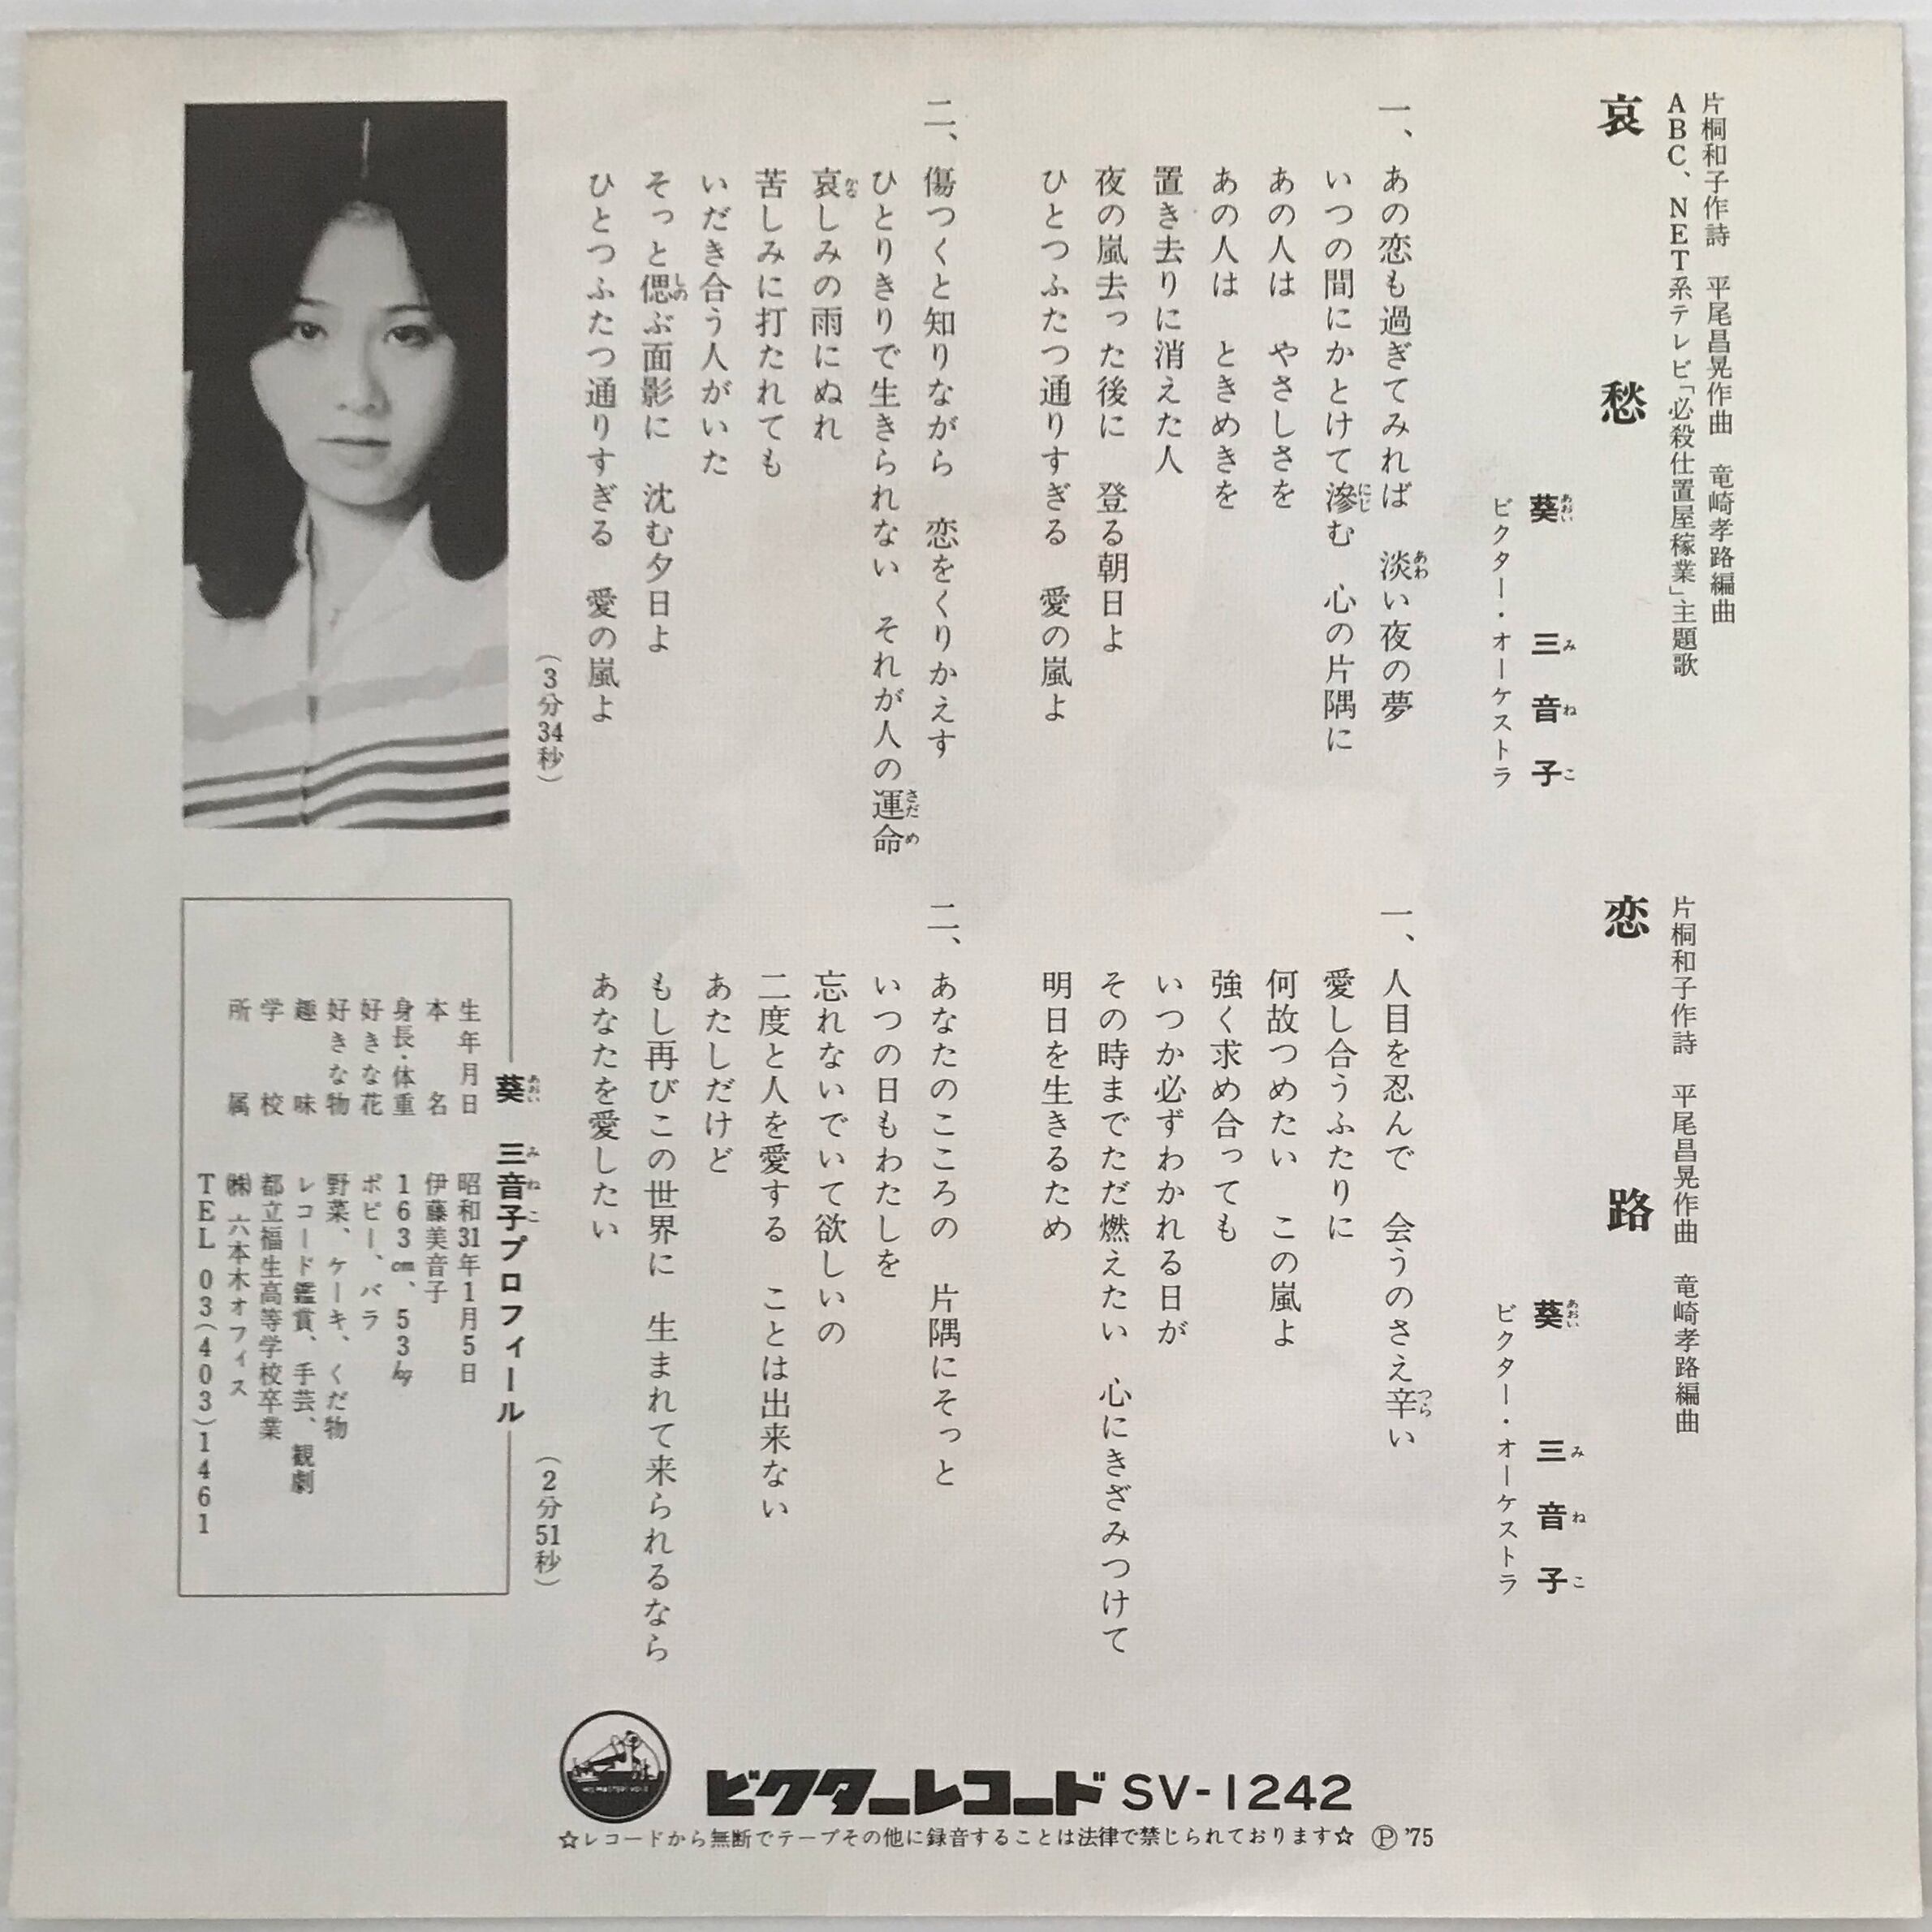 片桐和子作詩　平尾昌晃作曲　竜崎孝路編曲
ABC、NET系テレビ「必殺仕置屋稼業」主題歌
哀愁
葵三音子
あおい み ね こ
ビクター・オーケストラ
一、あの恋も過ぎてみれば　淡い夜の夢
あわ
いつの間にかとけて滲む　心の片隅に
にじ
あの人は　やさしさを
あの人は　ときめきを
置き去りに消えた人
夜の嵐去った後に　登る朝日よ
ひとつふたつ通りすぎる　愛の嵐よ
二、傷つくと知りながら　恋をくりかえす
ひとりきりで生きられない　それが人の運命
さだめ
哀しみの雨にぬれ
かな
苦しみに打たれても
いだき合う人がいた
そっと偲ぶ面影に　沈む夕日よ
しの
ひとつふたつ通りすぎる　愛の嵐よ
(3分34秒)
片桐和子作詩　平尾昌晃作曲　竜崎孝路編曲
恋路
葵三音子
あおい み ね こ
ビクター・オーケストラ
一、人目を忍んで　会うのさえ辛い
つら
愛し合うふたりに
何故つめたい　この嵐よ
強く求め合っても
いつか必ずわかれる日が
その時までただ燃えたい　心にきざみつけて
明日を生きるため
二、あなたのこころの　片隅にそっと
いつの日もわたしを
忘れないでいて欲しいの
二度と人を愛する　ことは出来ない
あたしだけど
もし再びこの世界に　生まれて来られるなら
あなたを愛したい
(2分51秒)
葵　三音子プロフィール
あおい み ね こ
生年月日　昭和31年1月5日
本名　伊藤美音子
身長・体重　163㎝、53㎏
好きな花　ポピー、バラ
好きな物　野菜、ケーキ、くだ物
趣味　レコード鑑賞、手芸、観劇
学校　都立福生高等学校卒業
所属　㈱六本木オフィス
TEL 03(403)1461
ビクターレコード SV-1242
☆レコードから無断でテープその他に録音することは法律で禁じられております☆ Ⓟ'75